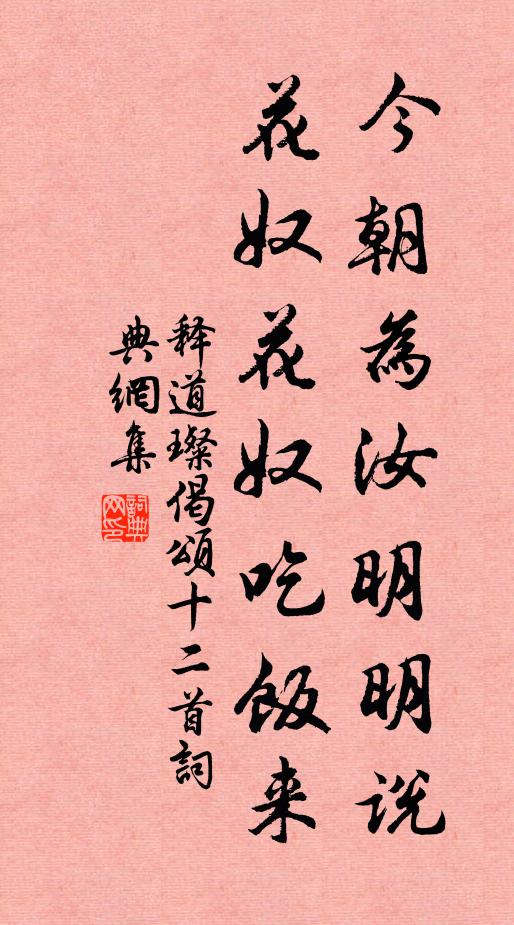 今朝為汝明明说
花奴花奴吃飯来
释道璨偈頌十二首詞
典網集
詞典
网印